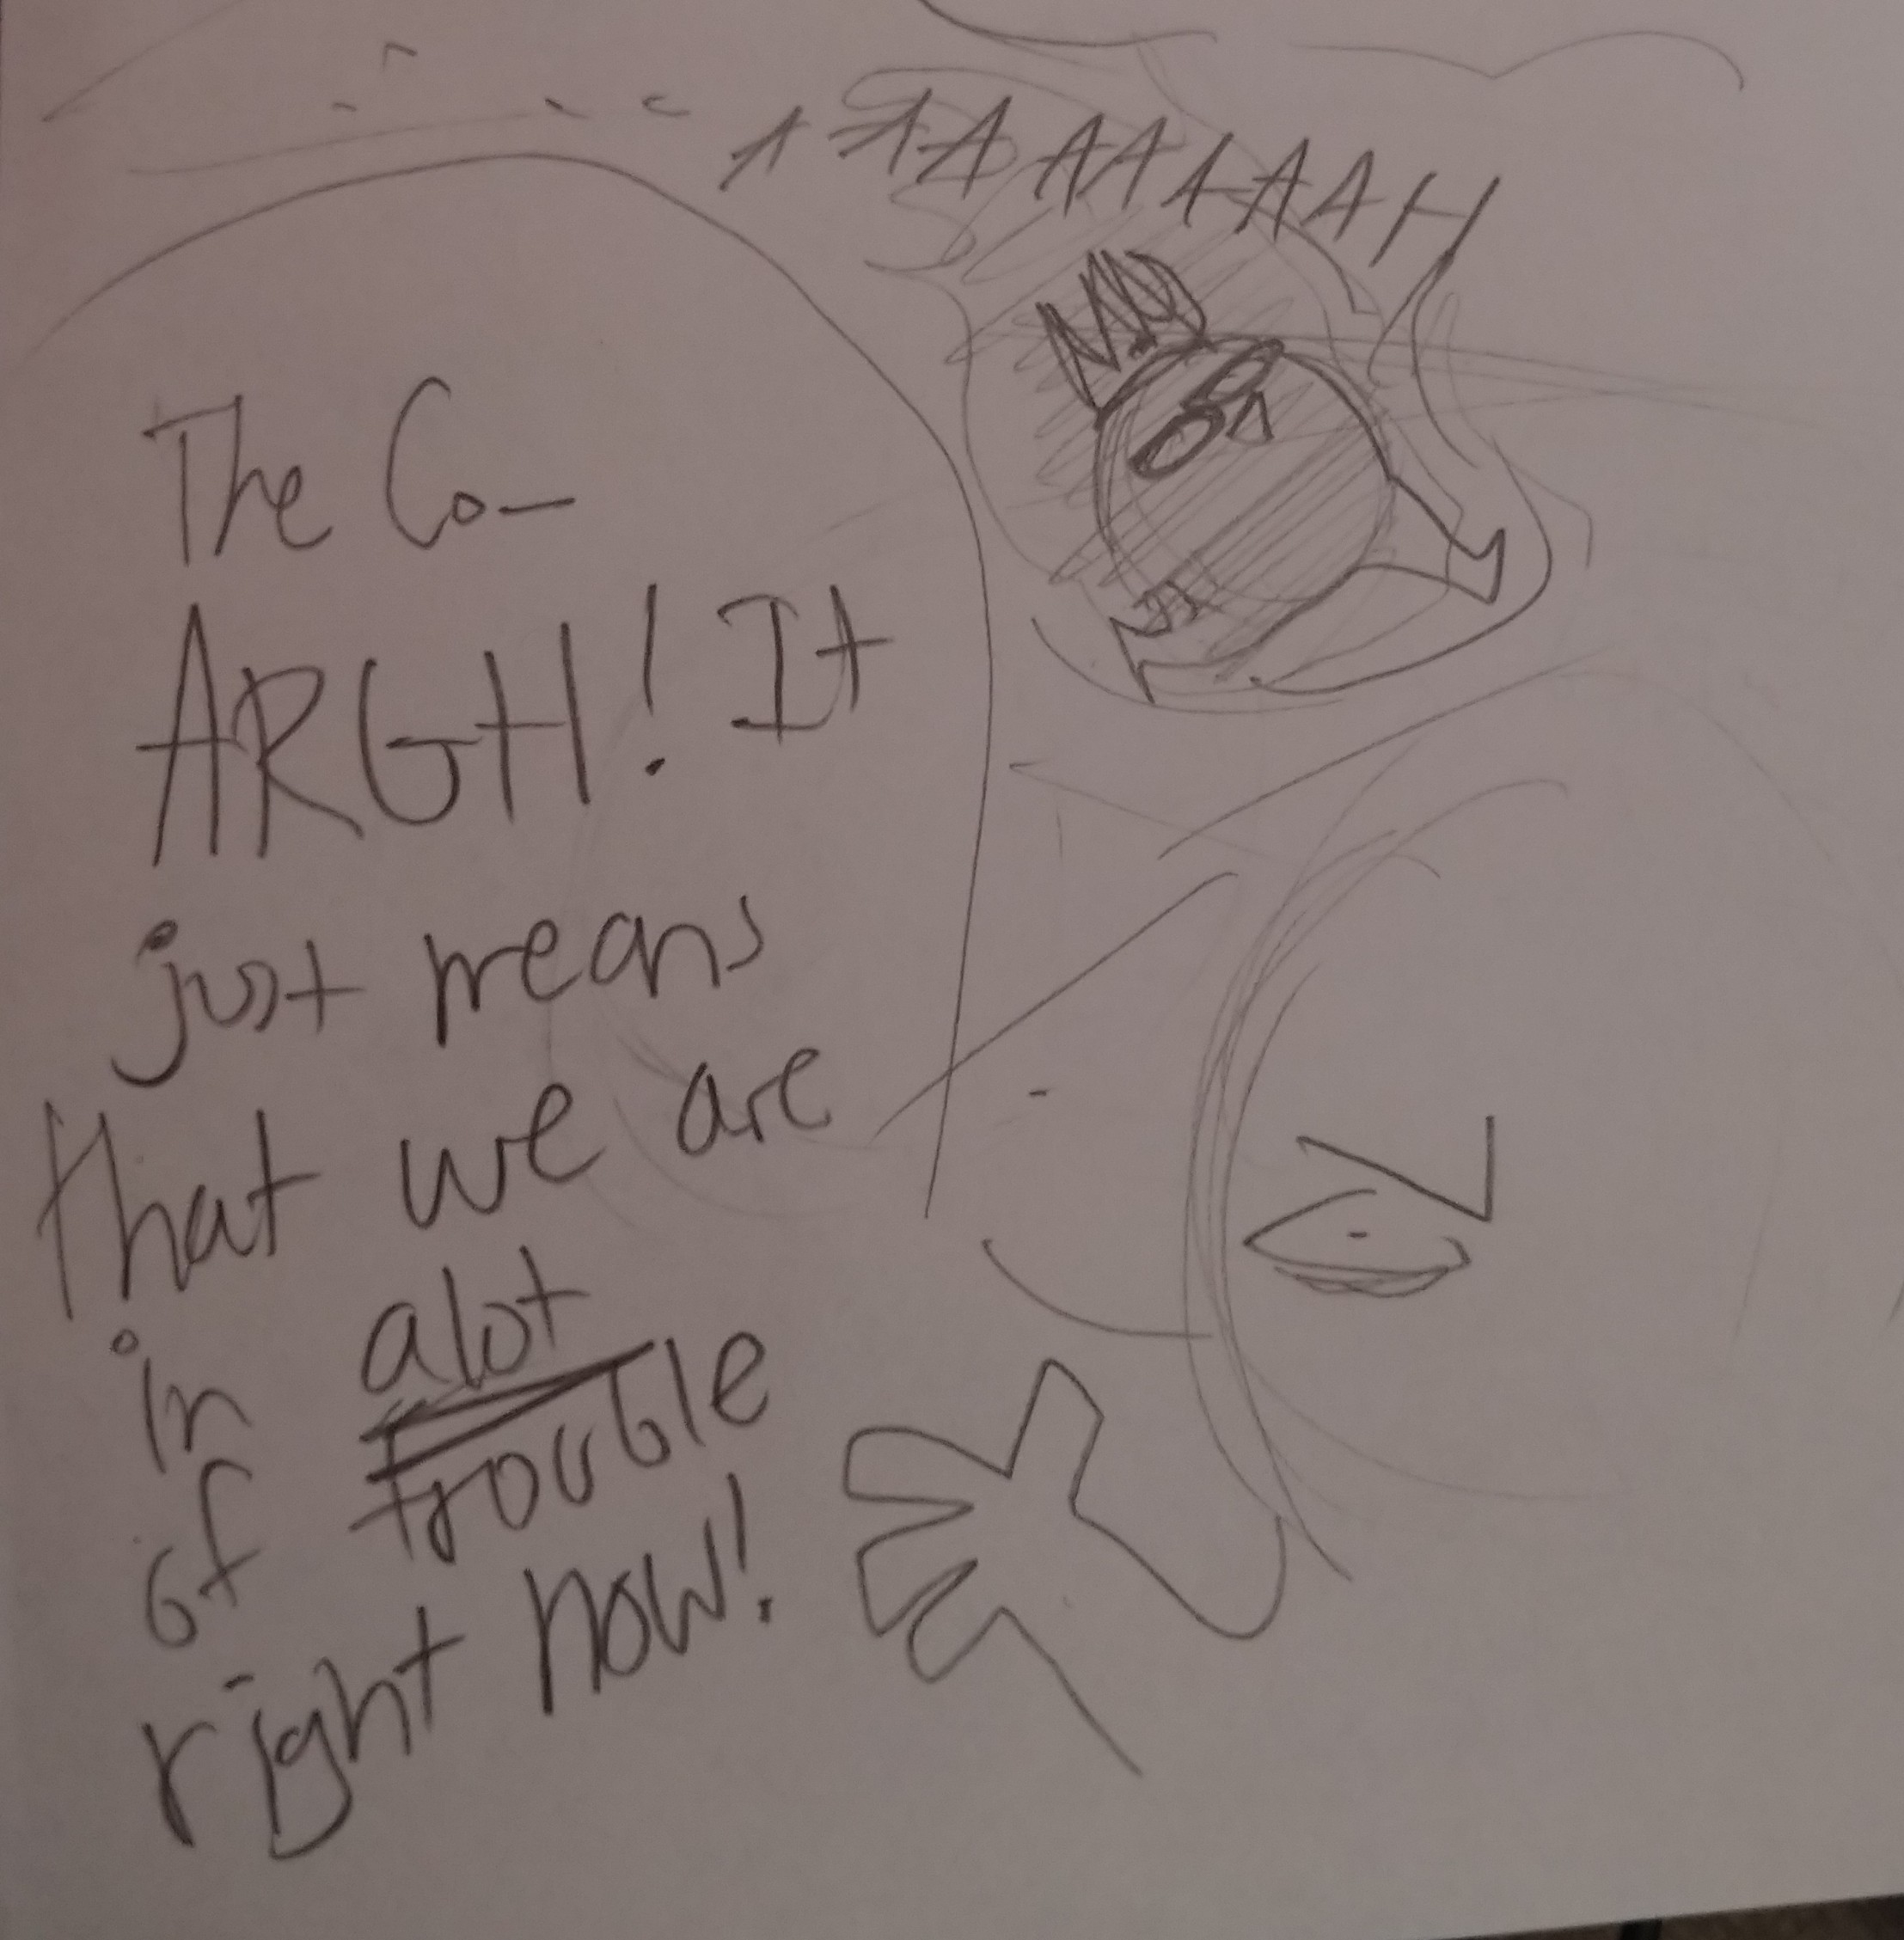 AAAAAAAAAH
The Co—
ARGH! It
just means
that we are
in alot
of trouble
right now!